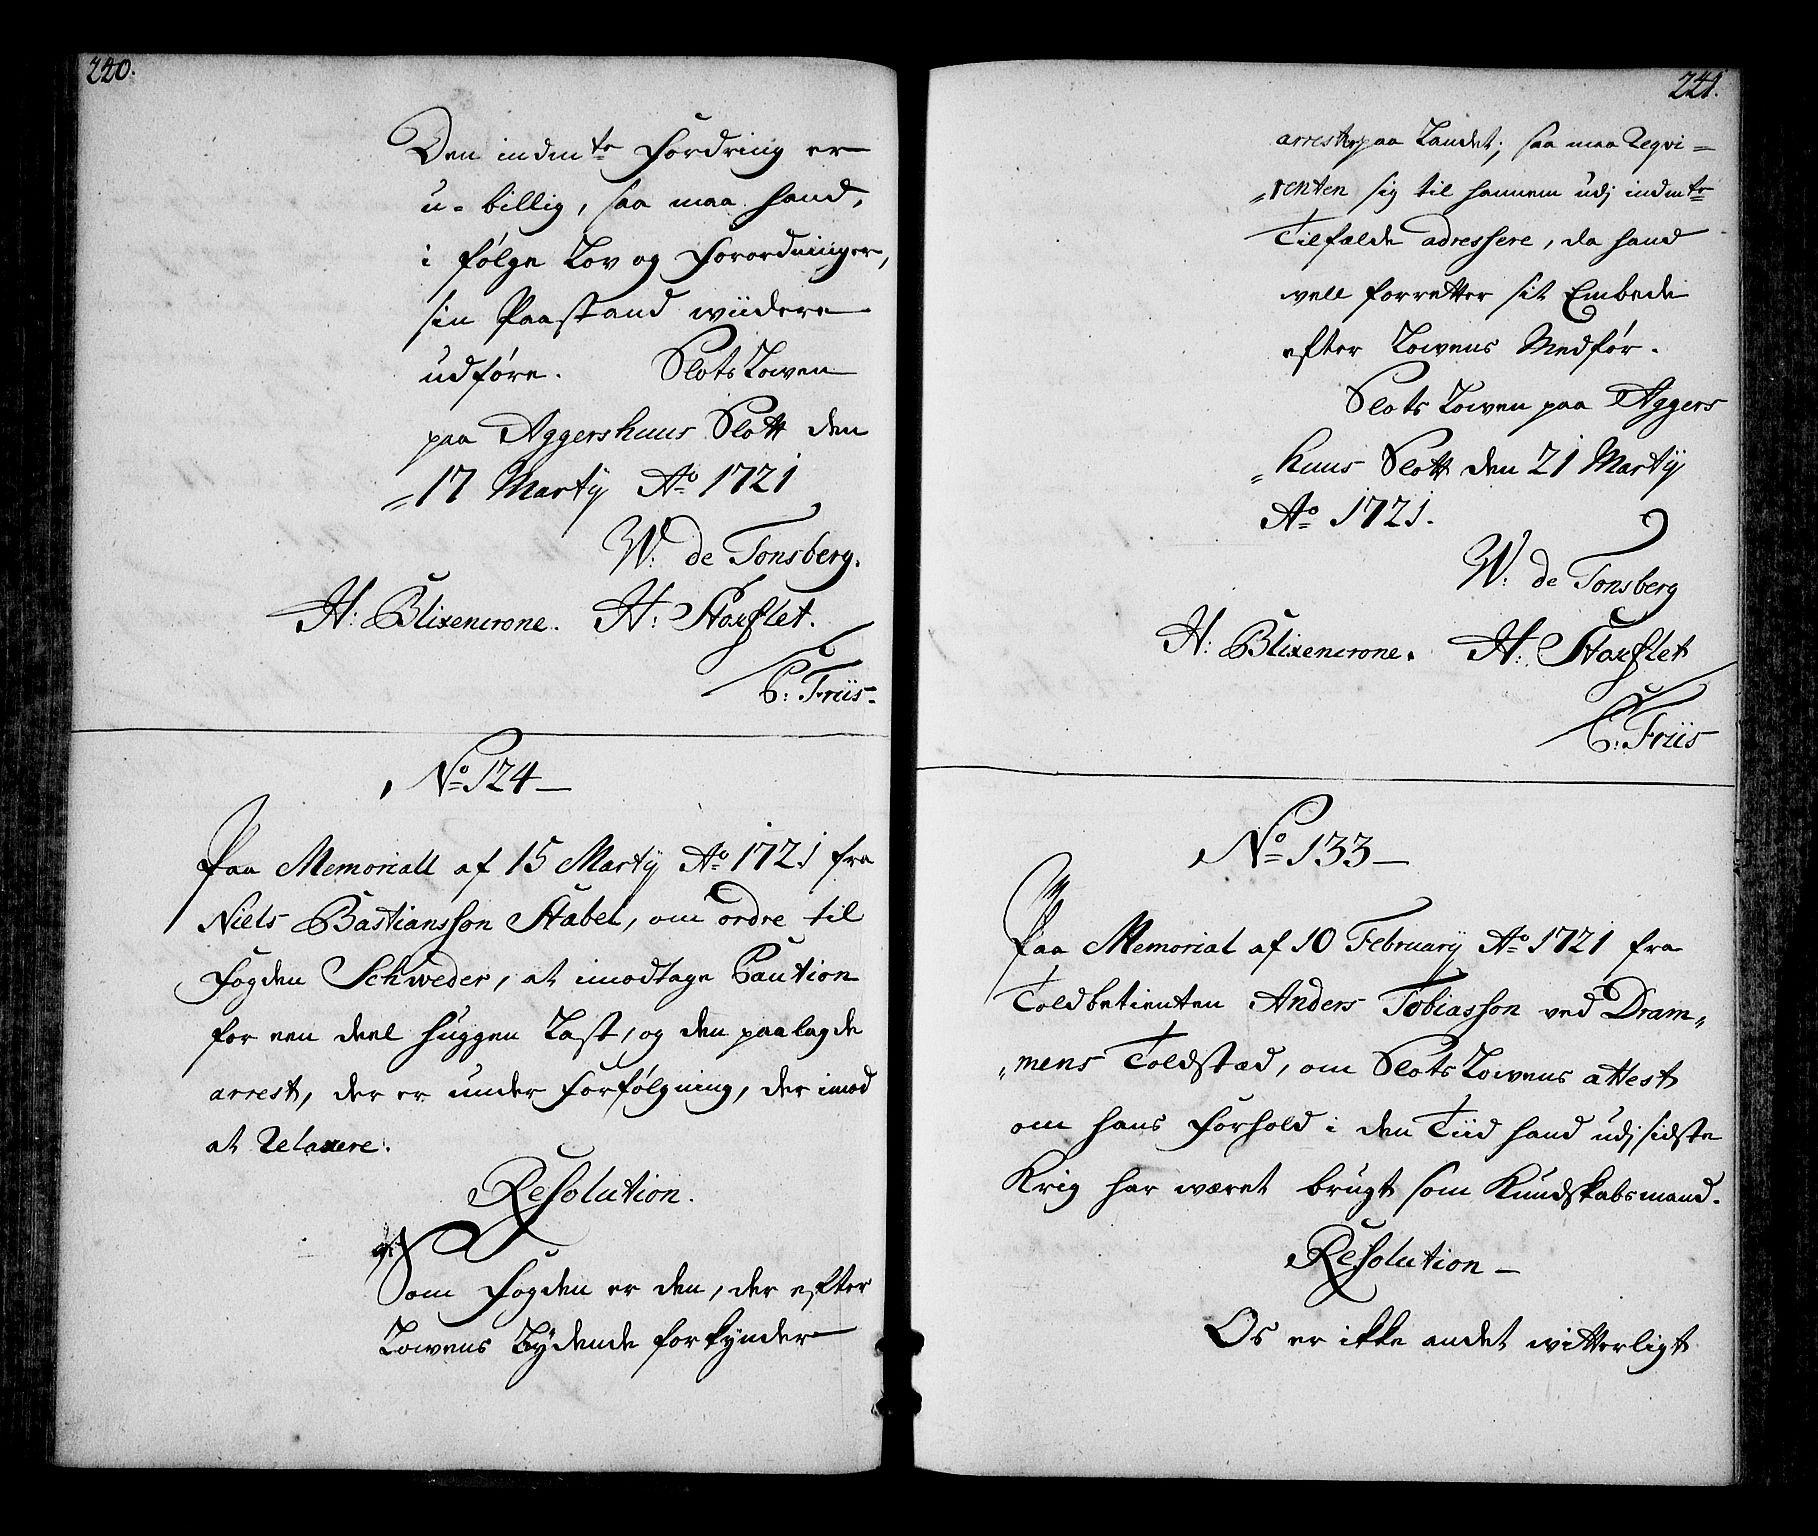 220.
Den indmte Fordring er
u-billig, saa maa hand,
i følge Lov og Forordninger,
sin Paastand wiidere
udføre. Slots Lowen
paa Aggershuus Slott den
17 Martÿ Ao 1721
W: de Tonsberg.
H: Blixencrone. H: Storflet.
C: Friis.
No 124
Paa Memoriall af 15 Martÿ Ao 1721 fra
Niels Bastiansson Stabel, om ordre til
Fogden Schweder, at imodtage Caution
for een deel huggen Last, og den paalagde
arrest, der er under Forfølgning, der imod
at Relaxere.
Resolution.
Som Fogden er den, der efter
Lowens Lydende forkynder
221.
arrester paa Landet; saa maa Reqvi=
renten sig til hannem udj indmte
Tilfælde adressere, da hand
vell forretter sit Embede
efter Lowens Medfør.
Slots Lowen paa Aggers
huus Slott den 21 Martÿ
Ao 1721.
W: de Tonsberg
H: Blixencrone. H: Storflet
C: Friis
No 133
Paa Memorial af 10 Februarÿ Ao 1721 fra
Toldbetienten Anders Tobiasson ved Dram„
„mens Toldstæd, om Slots Lowens attest
om hans Forhold i den Tiid hand udj sidste
Krig har wæret brugt som Kundskabsmand.
Resolution
Os er ikke andet witterligt